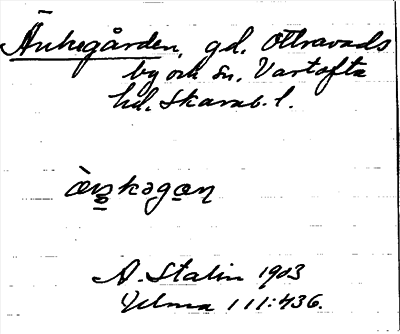 Änkegården, gd. Ottravads
by och sn. Vartofta
hd. Skarab. l.
A. Stalin 1903
111:436.